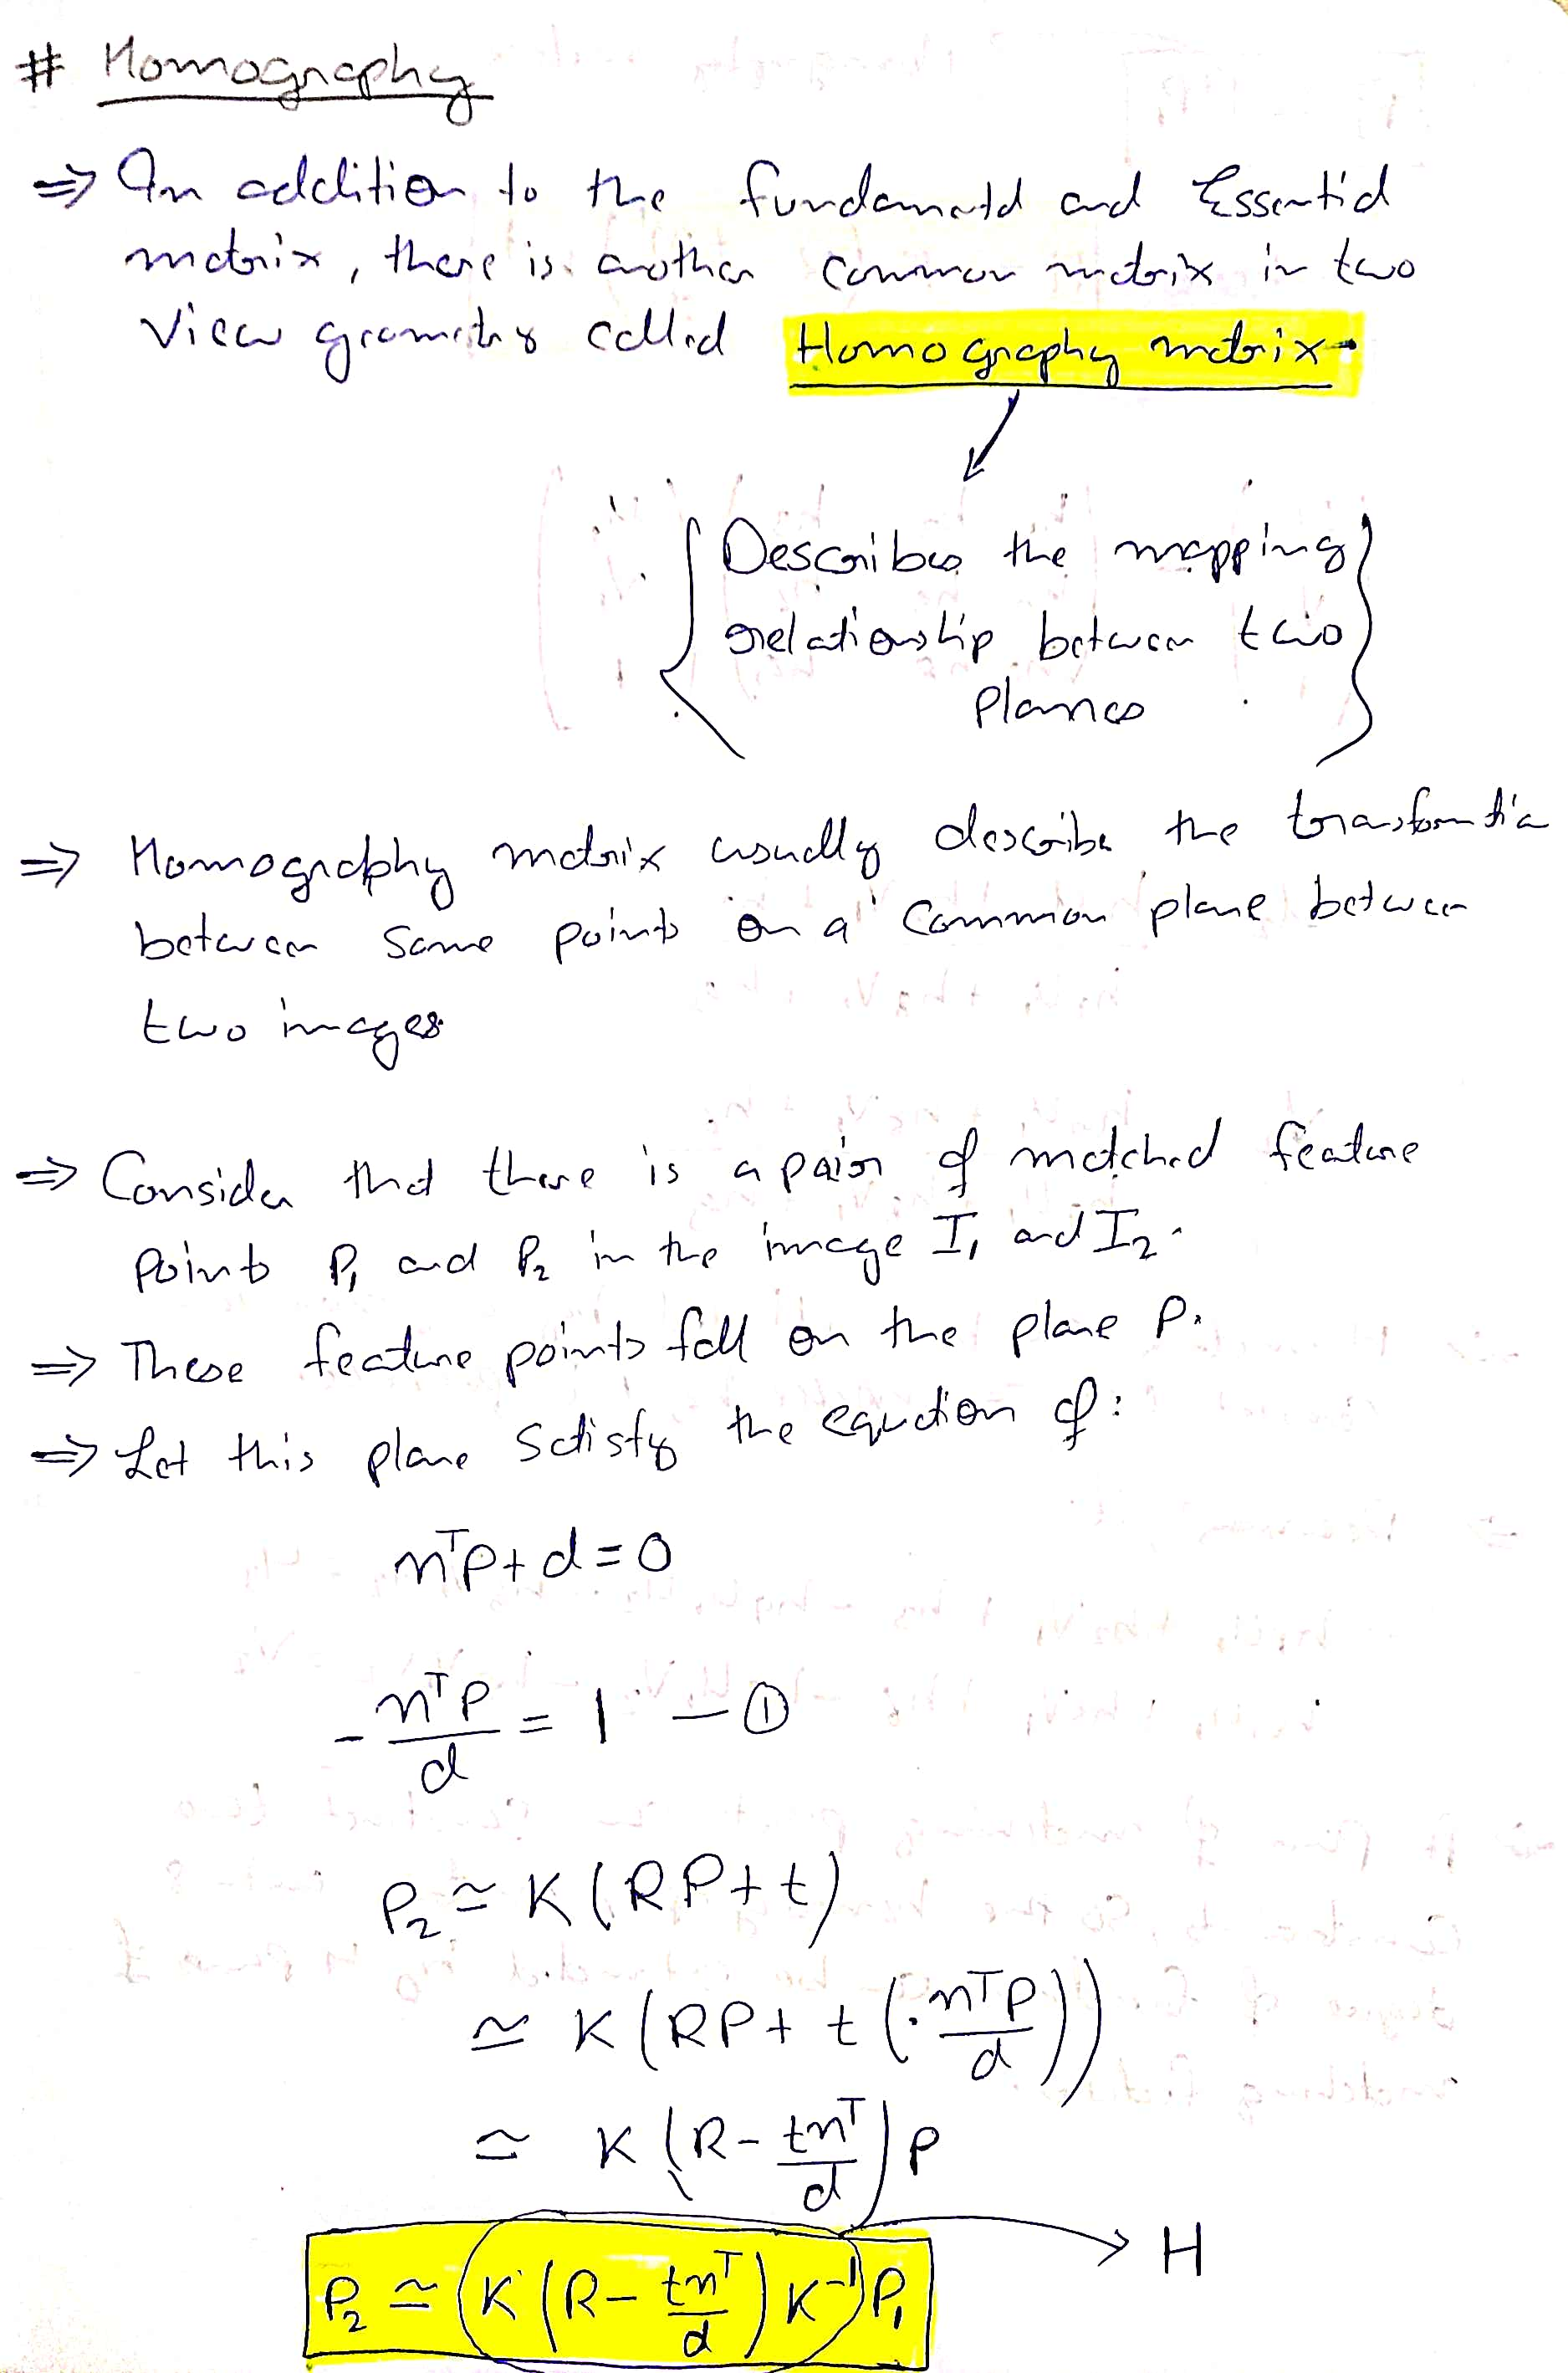 # Homography
⇒ In addition to the fundamental and Essential
matrix, there is another common matrix in two
view geometry called Homography matrix.
Describes the mapping
relationship between two
planes
⇒ Homography matrix usually describe the transformation
between some points on a common plane between
two images.
⇒ Consider that there is a pair of matched feature
points P₁ and P₂ in the image I₁ and I₂.
⇒ These feature points fall on the plane P.
⇒ Let this plane satisfy the equation of:
nᵀP + d = 0
- nᵀP/d = 1 — ①
P₂ ≃ K(RP + t)
≃ K(RP + t(-nᵀP/d))
≃ K(R - tnᵀ/d)P
P₂ ≃ K(R - tnᵀ/d)K⁻¹P₁ → H